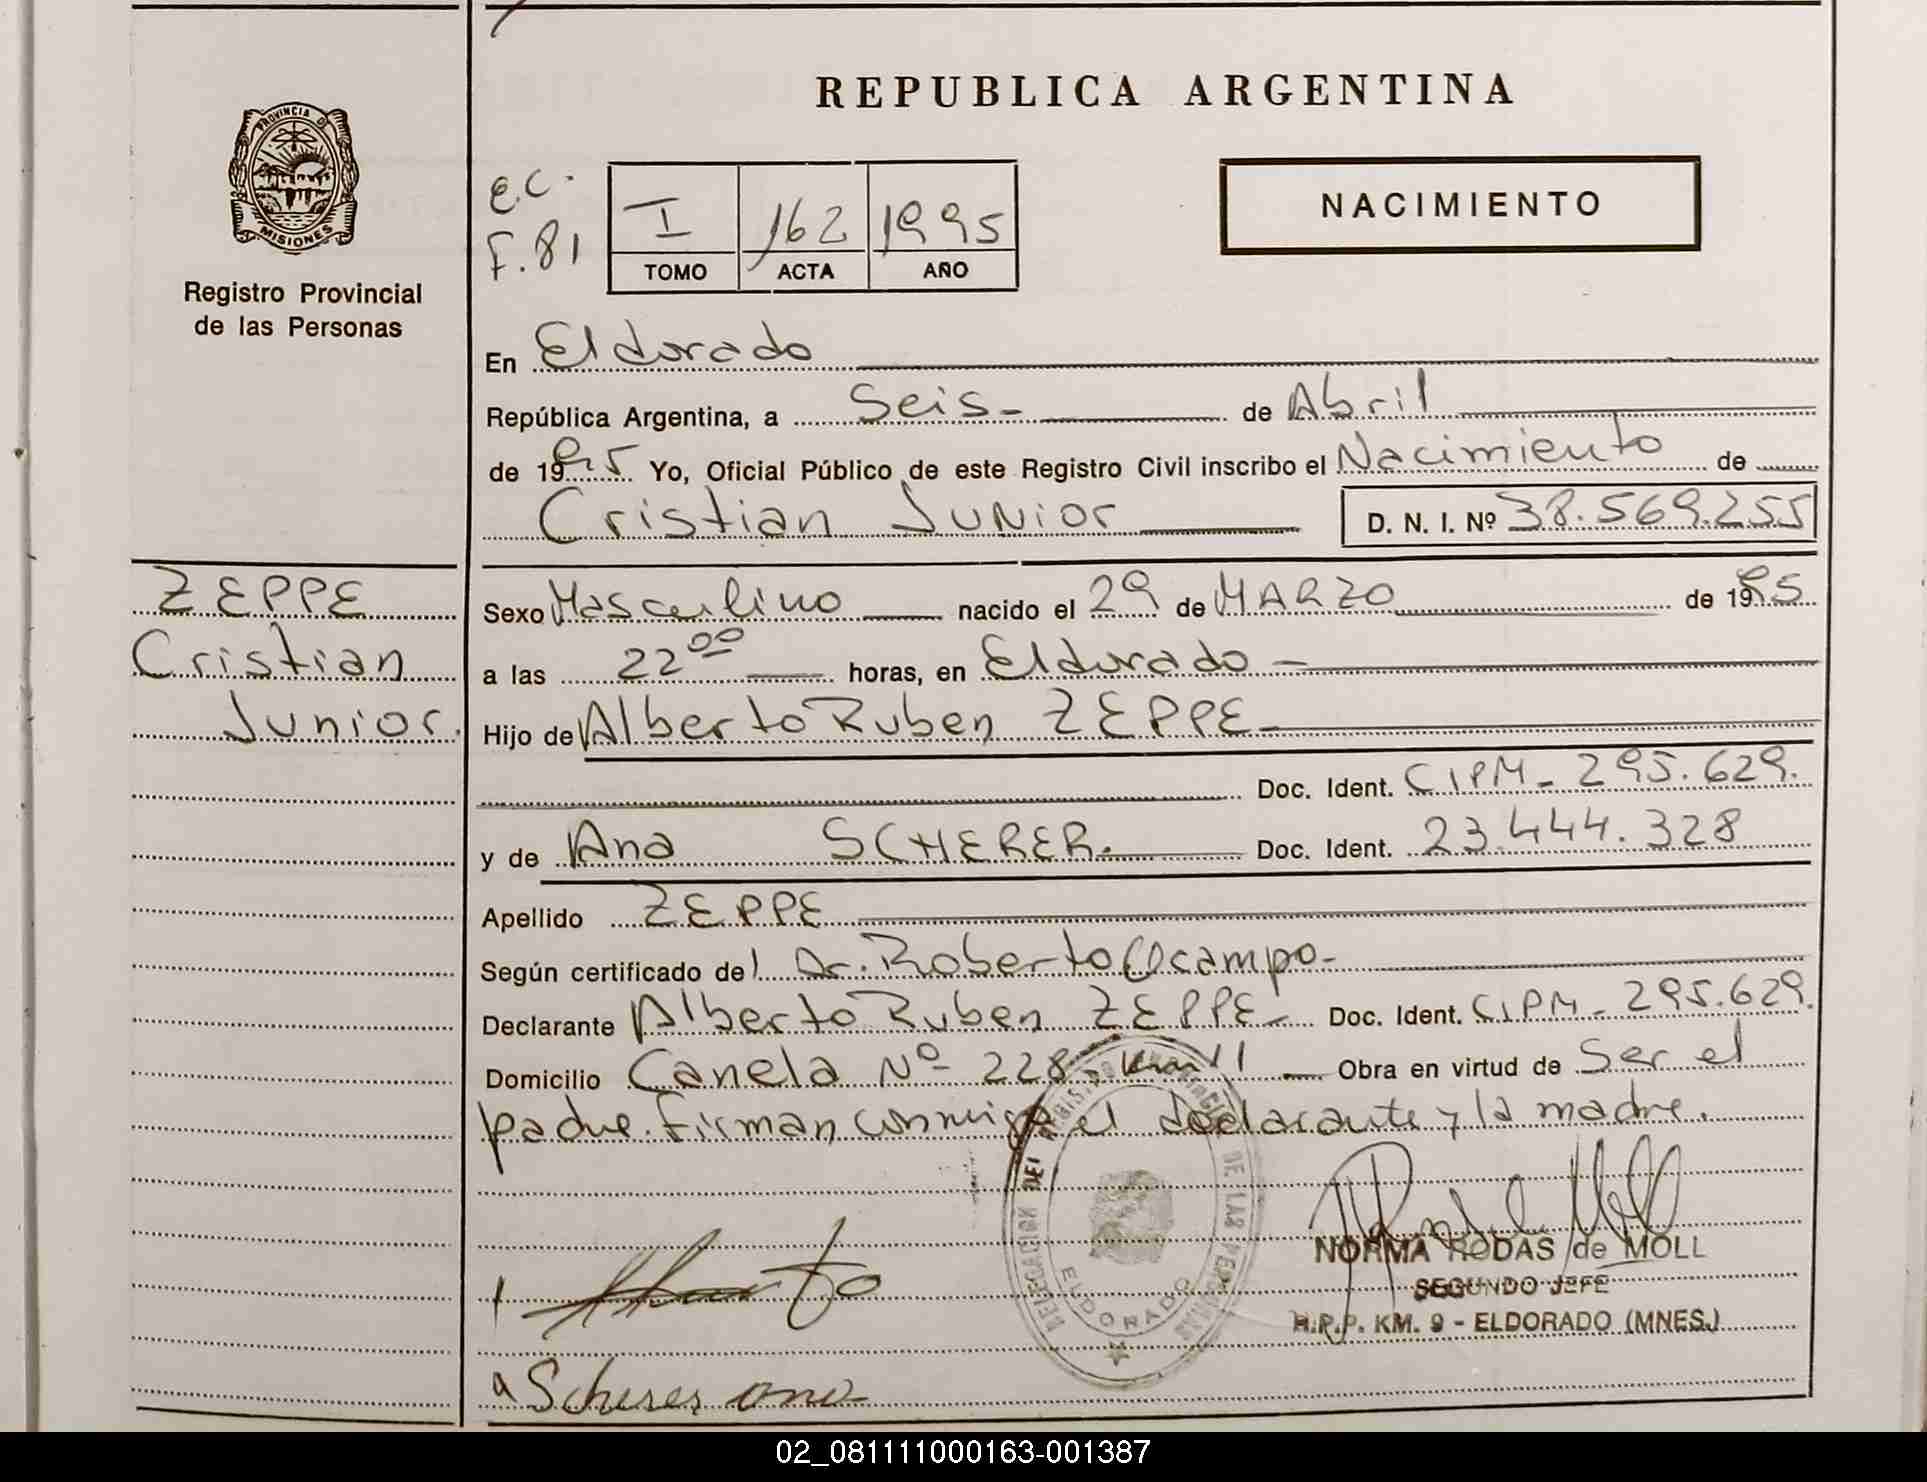 REPUBLICA ARGENTINA
PROVINCIA DE
MISIONES
Registro Provincial
de las Personas
E.C.
F. 81
I 162 1995
TOMO ACTA AÑO
NACIMIENTO
En Eldorado
República Argentina, a Seis - de Abril
de 1995 Yo, Oficial Público de este Registro Civil inscribo el Nacimiento de
Cristian Junior D. N. I. Nº 38.569.255
ZEPPE
Cristian
Junior.
Sexo Masculino nacido el 29 de MARZO de 1995
a las 22 00 horas, en Eldorado -
Hijo de Alberto Ruben ZEPPE -
Doc. Ident. CIPM - 295.629.
y de Ana SCHERER. Doc. Ident. 23.444.328
Apellido ZEPPE
Según certificado del Dr. Roberto Ocampo -
Declarante Alberto Ruben ZEPPE - Doc. Ident. CIPM - 295.629.
Domicilio Canela Nº 228 - Km 11 Obra en virtud de Ser el
padre. Firman conmigo el declarante y la madre.
DELEGACION DEL REGISTRO PROVINCIAL DE LAS PERSONAS
ELDORADO
NORMA RODAS de MOLL
SEGUNDO JEFE
R.P.P. KM. 9 - ELDORADO (MNES.)
Scherer ana
02_081111000163-001387